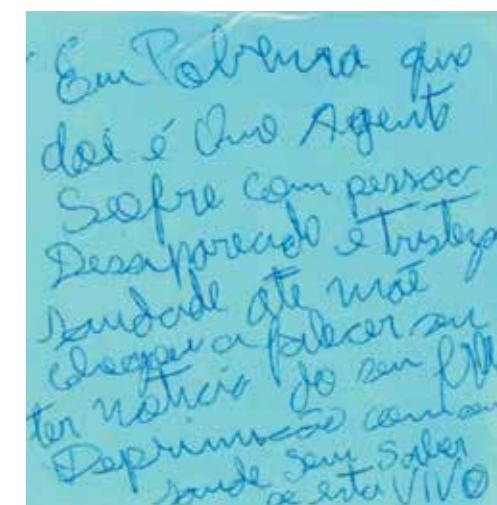 Em Pobreza que
doi é Que Agente
Sofre com pessoa
Desaparecido e tristeza
saudade ate mãe
chegou a falecer sem
ter noticia do seu
Deprimição com sua
saude sem saber
se esta VIVO